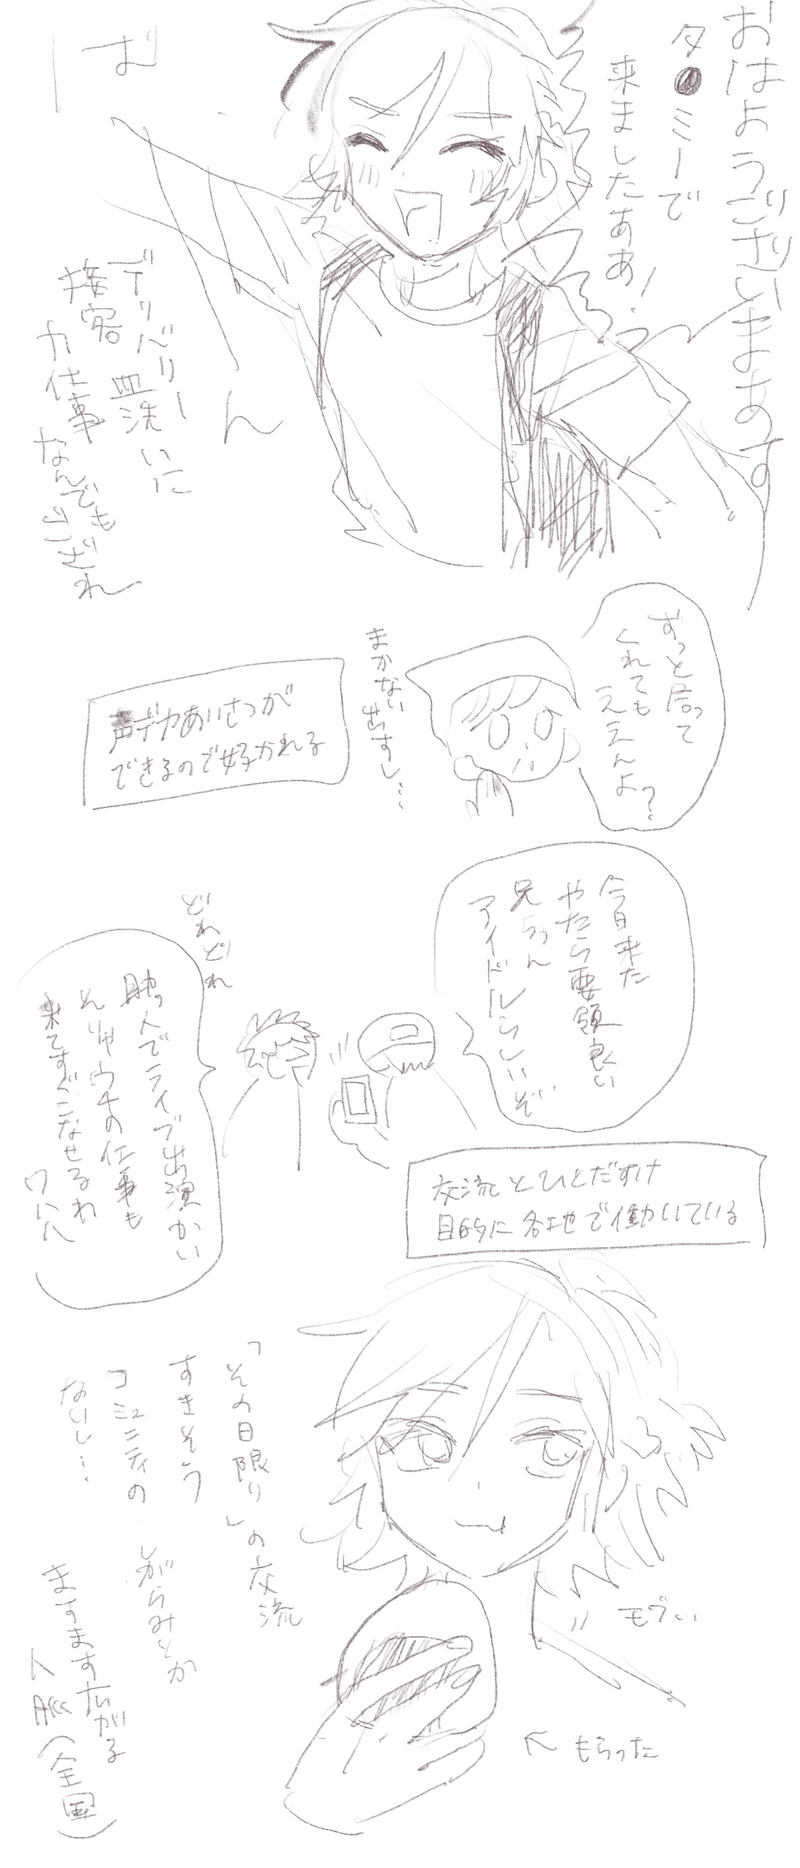 おはようございまぁす
タ●ミーで
来ましたああ!
ば
ー
ん
デリバリー 皿洗いに
接客
力仕事
なんでも
ござれ
ずっと居って
くれても
ええんよ?
まかない出すし…
声デカあいさつが
できるので好かれる
今日来た
やたら要領良い
兄ちゃん
アイドルらしいぞ
どれどれ
触人でライブ出演かい
そりゃウチの仕事も
来てすぐこなせるわ
ワハハ
交流とひとだすけ
目的に各地で働いている
「その日限り」の交流
すきそう
コミュニティの
しがらみとか
ないし…
ますます広がる
人脈(全国)
もぐ…
← もらった